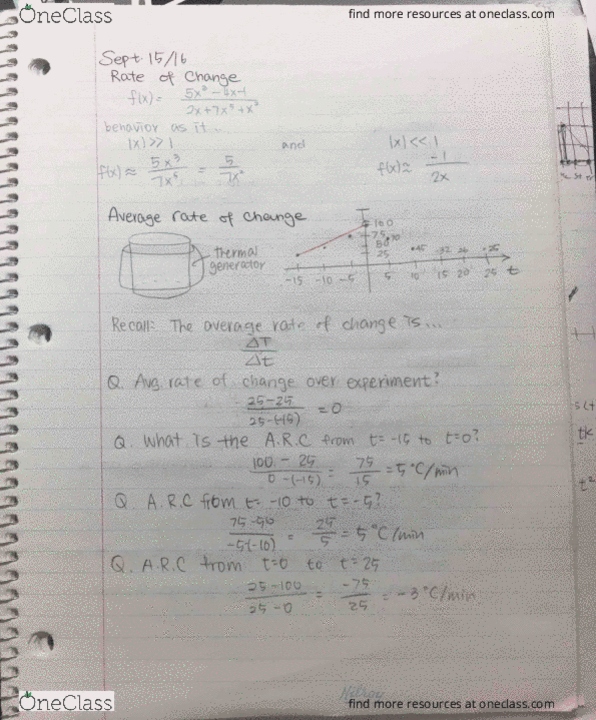 OneClass
find more resources at oneclass.com
Sept 15/16
Rate of Change
f(x)=
2x+7x⁵+x²
behavior as it...
|x|>>1 and |x|<<1
f(x)≈ 5x³ = 5
-1
2x
Average rate of change
thermal
generator
100
75
25
-15 -10 -5 5 10 15 20 25 t
Recall: The average rate of change is...
ΔT
Δt
Q. Avg rate of change over experiment?
25-25 = 0
25-(-15)
Q. What is the A.R.C from t=-15 to t=0?
100 - 25 = 75 = 5°C/min
0-(-15) 15
Q. A.R.C from t= -10 to t=-5?
75-50 = 25 = 5°C/min
-5-(-10) 5
Q. A.R.C from t=0 to t=25
25-100 = -75 = -3°C/min
25-0 25
OneClass
find more resources at oneclass.com